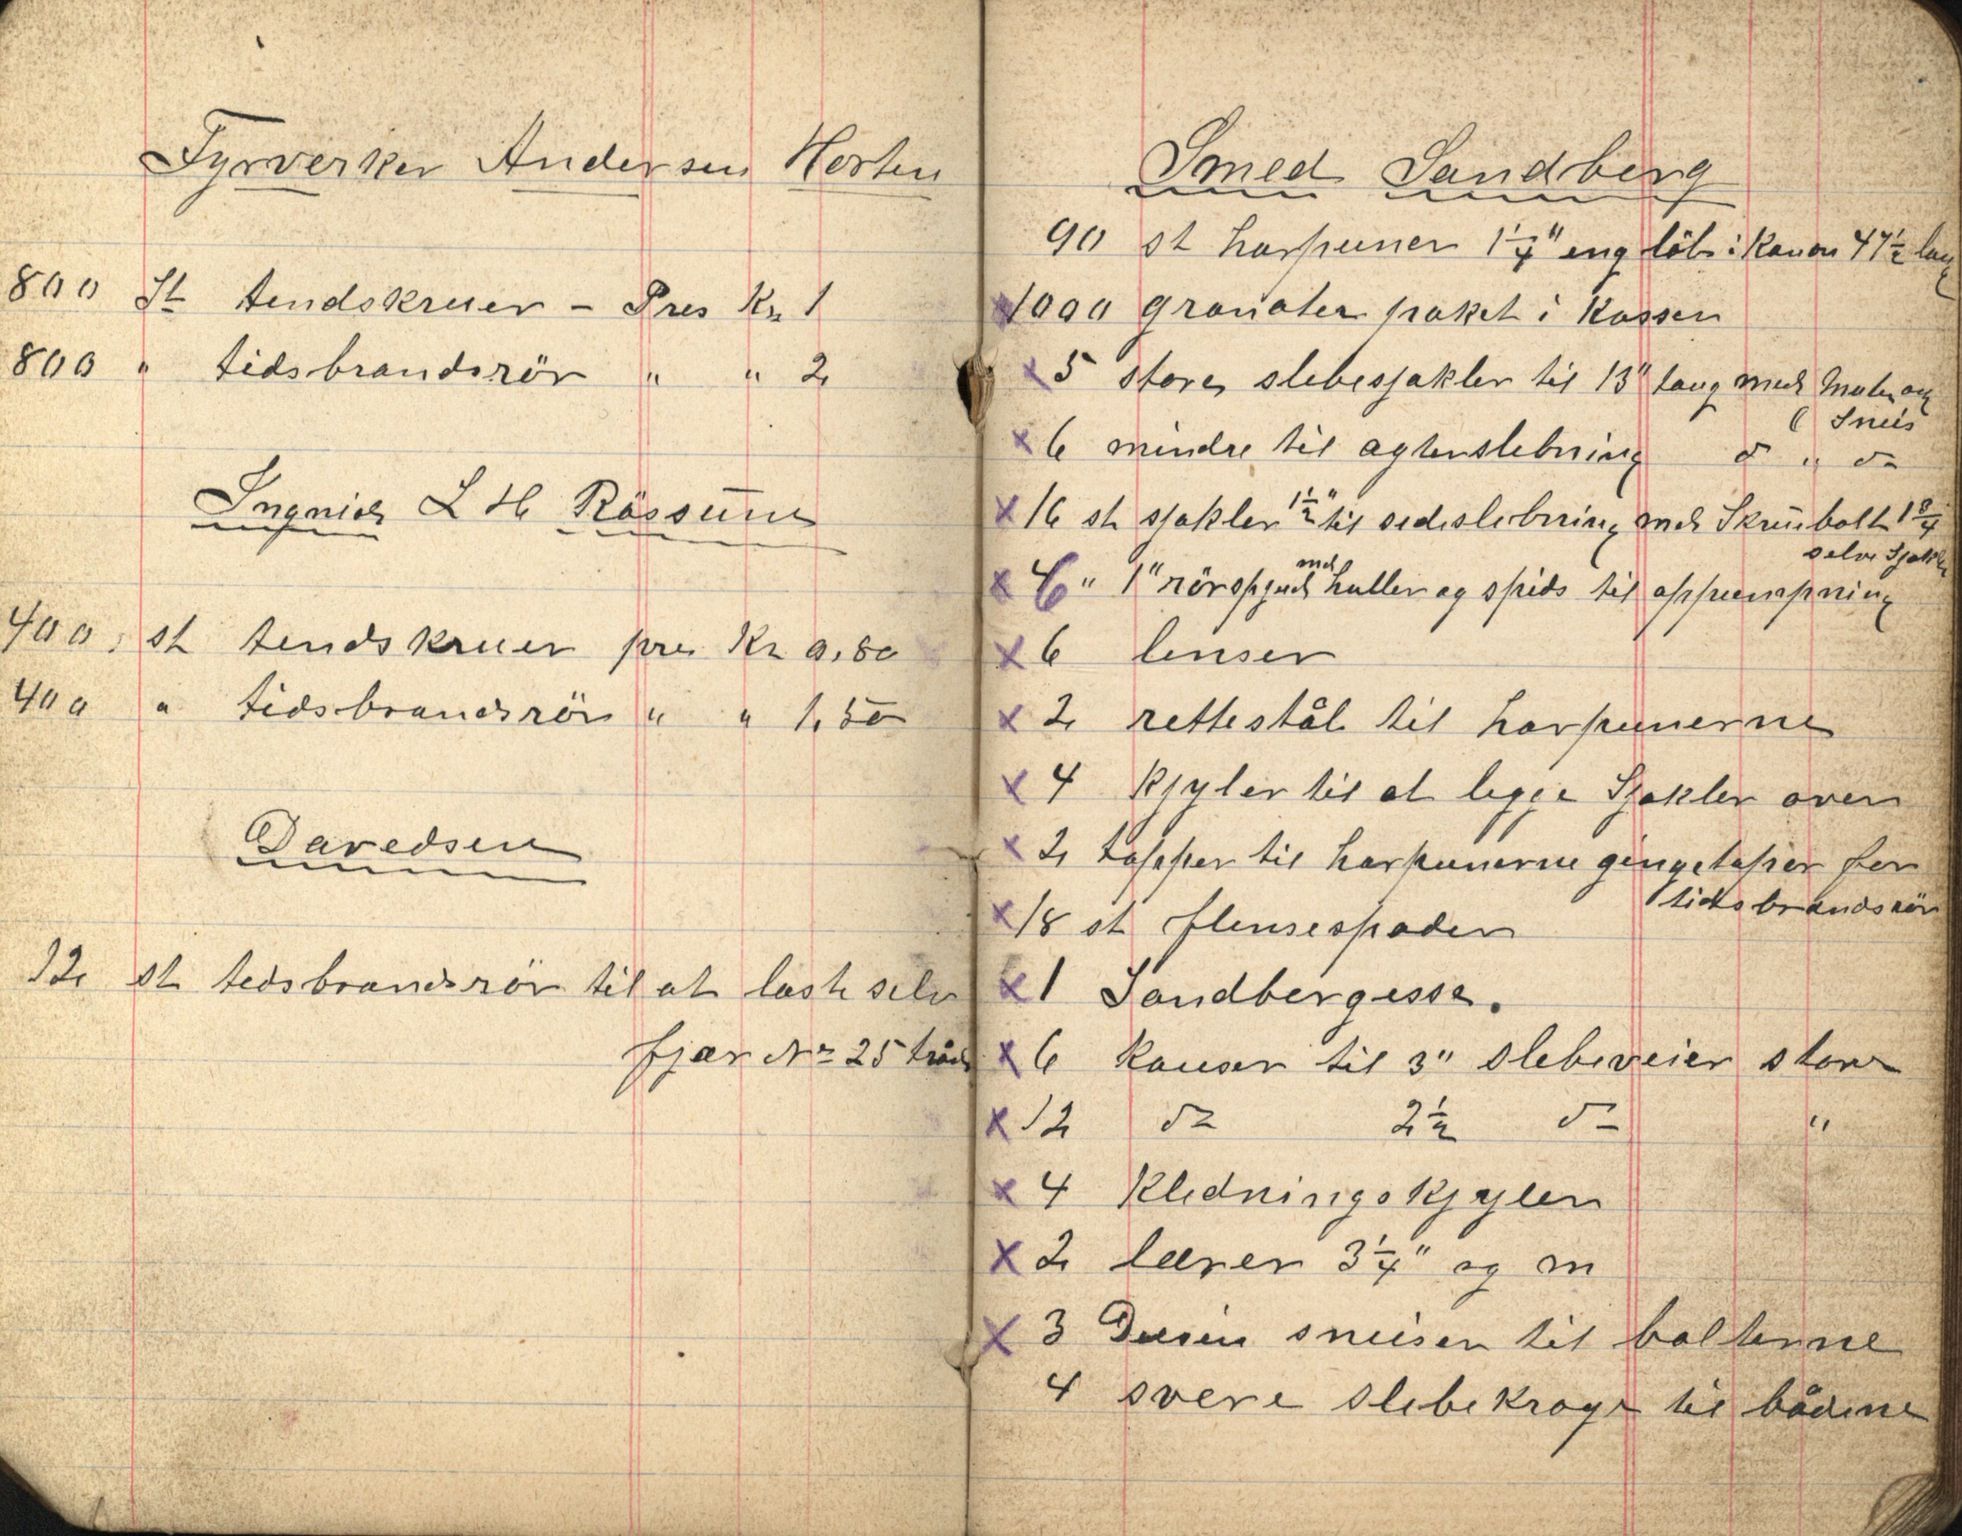 Fyrverker Andersen Horten
800 St tendskruer - Pres Kr 1
800 " tidsbrandsrör " " 2
Ingniör L H Rössum
400 st tendskruer pres Kr 0,80
400 " tidsbrandsrör " " 1,50
Davedsen
12 st tedsbrandsrör til at laste selv
fjær Nr 25 tråd
Smed Sandberg
90 st harpuner 1 1/4" eng löb i Kanon 47 1/2 lang
x 1000 granater paket i Kassen
x 5 store slebesjakler til 13" taug med Muter og
Sneis
x 6 mindre til agterslebning do " do
x 16 st sjakler 1 1/2" til sedeslebning med Skrübolt 1 3/4
selve Sjakler
x 6 " 1" rörspyd med huller og spids til oppumpning
x 6 lenser
x 2 rettestål til harpunerne
x 4 Kjyler til at legge Sjakler over
x 2 tapper til harpunerne gingetaper for
tidsbrandsrör
x 18 st flensespader
x 1 Sandbergesse.
x 6 Kauser til 3" slebeveier store
x 12 do 2 1/2 do "
x 4 Kledningskjyler
x 2 lærer 3 1/4" og m
x 3 Dusin sneiser til bolterne
4 svere slebekroge til bådene